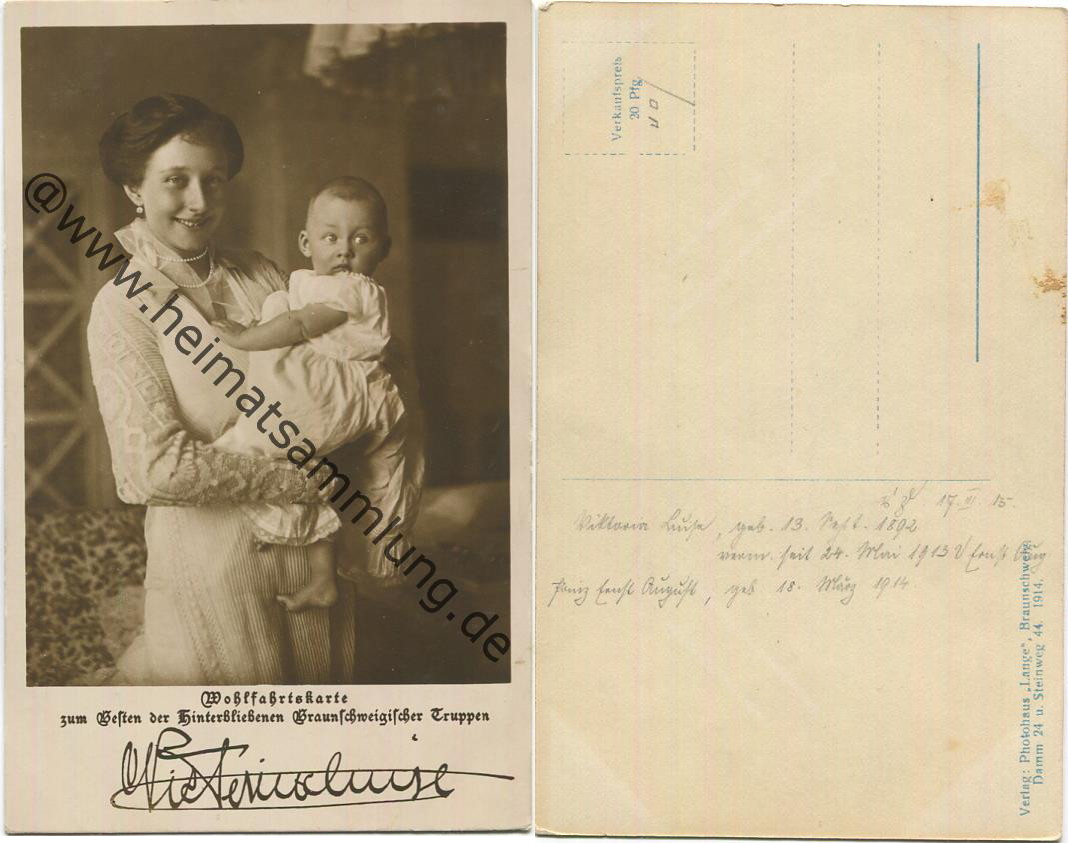 @www.heimatsammlung.de
Wohlfahrtskarte
zum Besten der Hinterbliebenen Braunschweigischer Truppen
Victoria Luise
Verkaufspreis
20 Pfg.
17. III. 15.
Viktoria Luise, geb. 13. Sept. 1892
verm. seit 24. Mai 1913 Ernst Aug
Prinz Ernst August, geb 18. März 1914
Verlag: Photohaus „Lange", Braunschweig.
Damm 24 u. Steinweg 44. 1914.